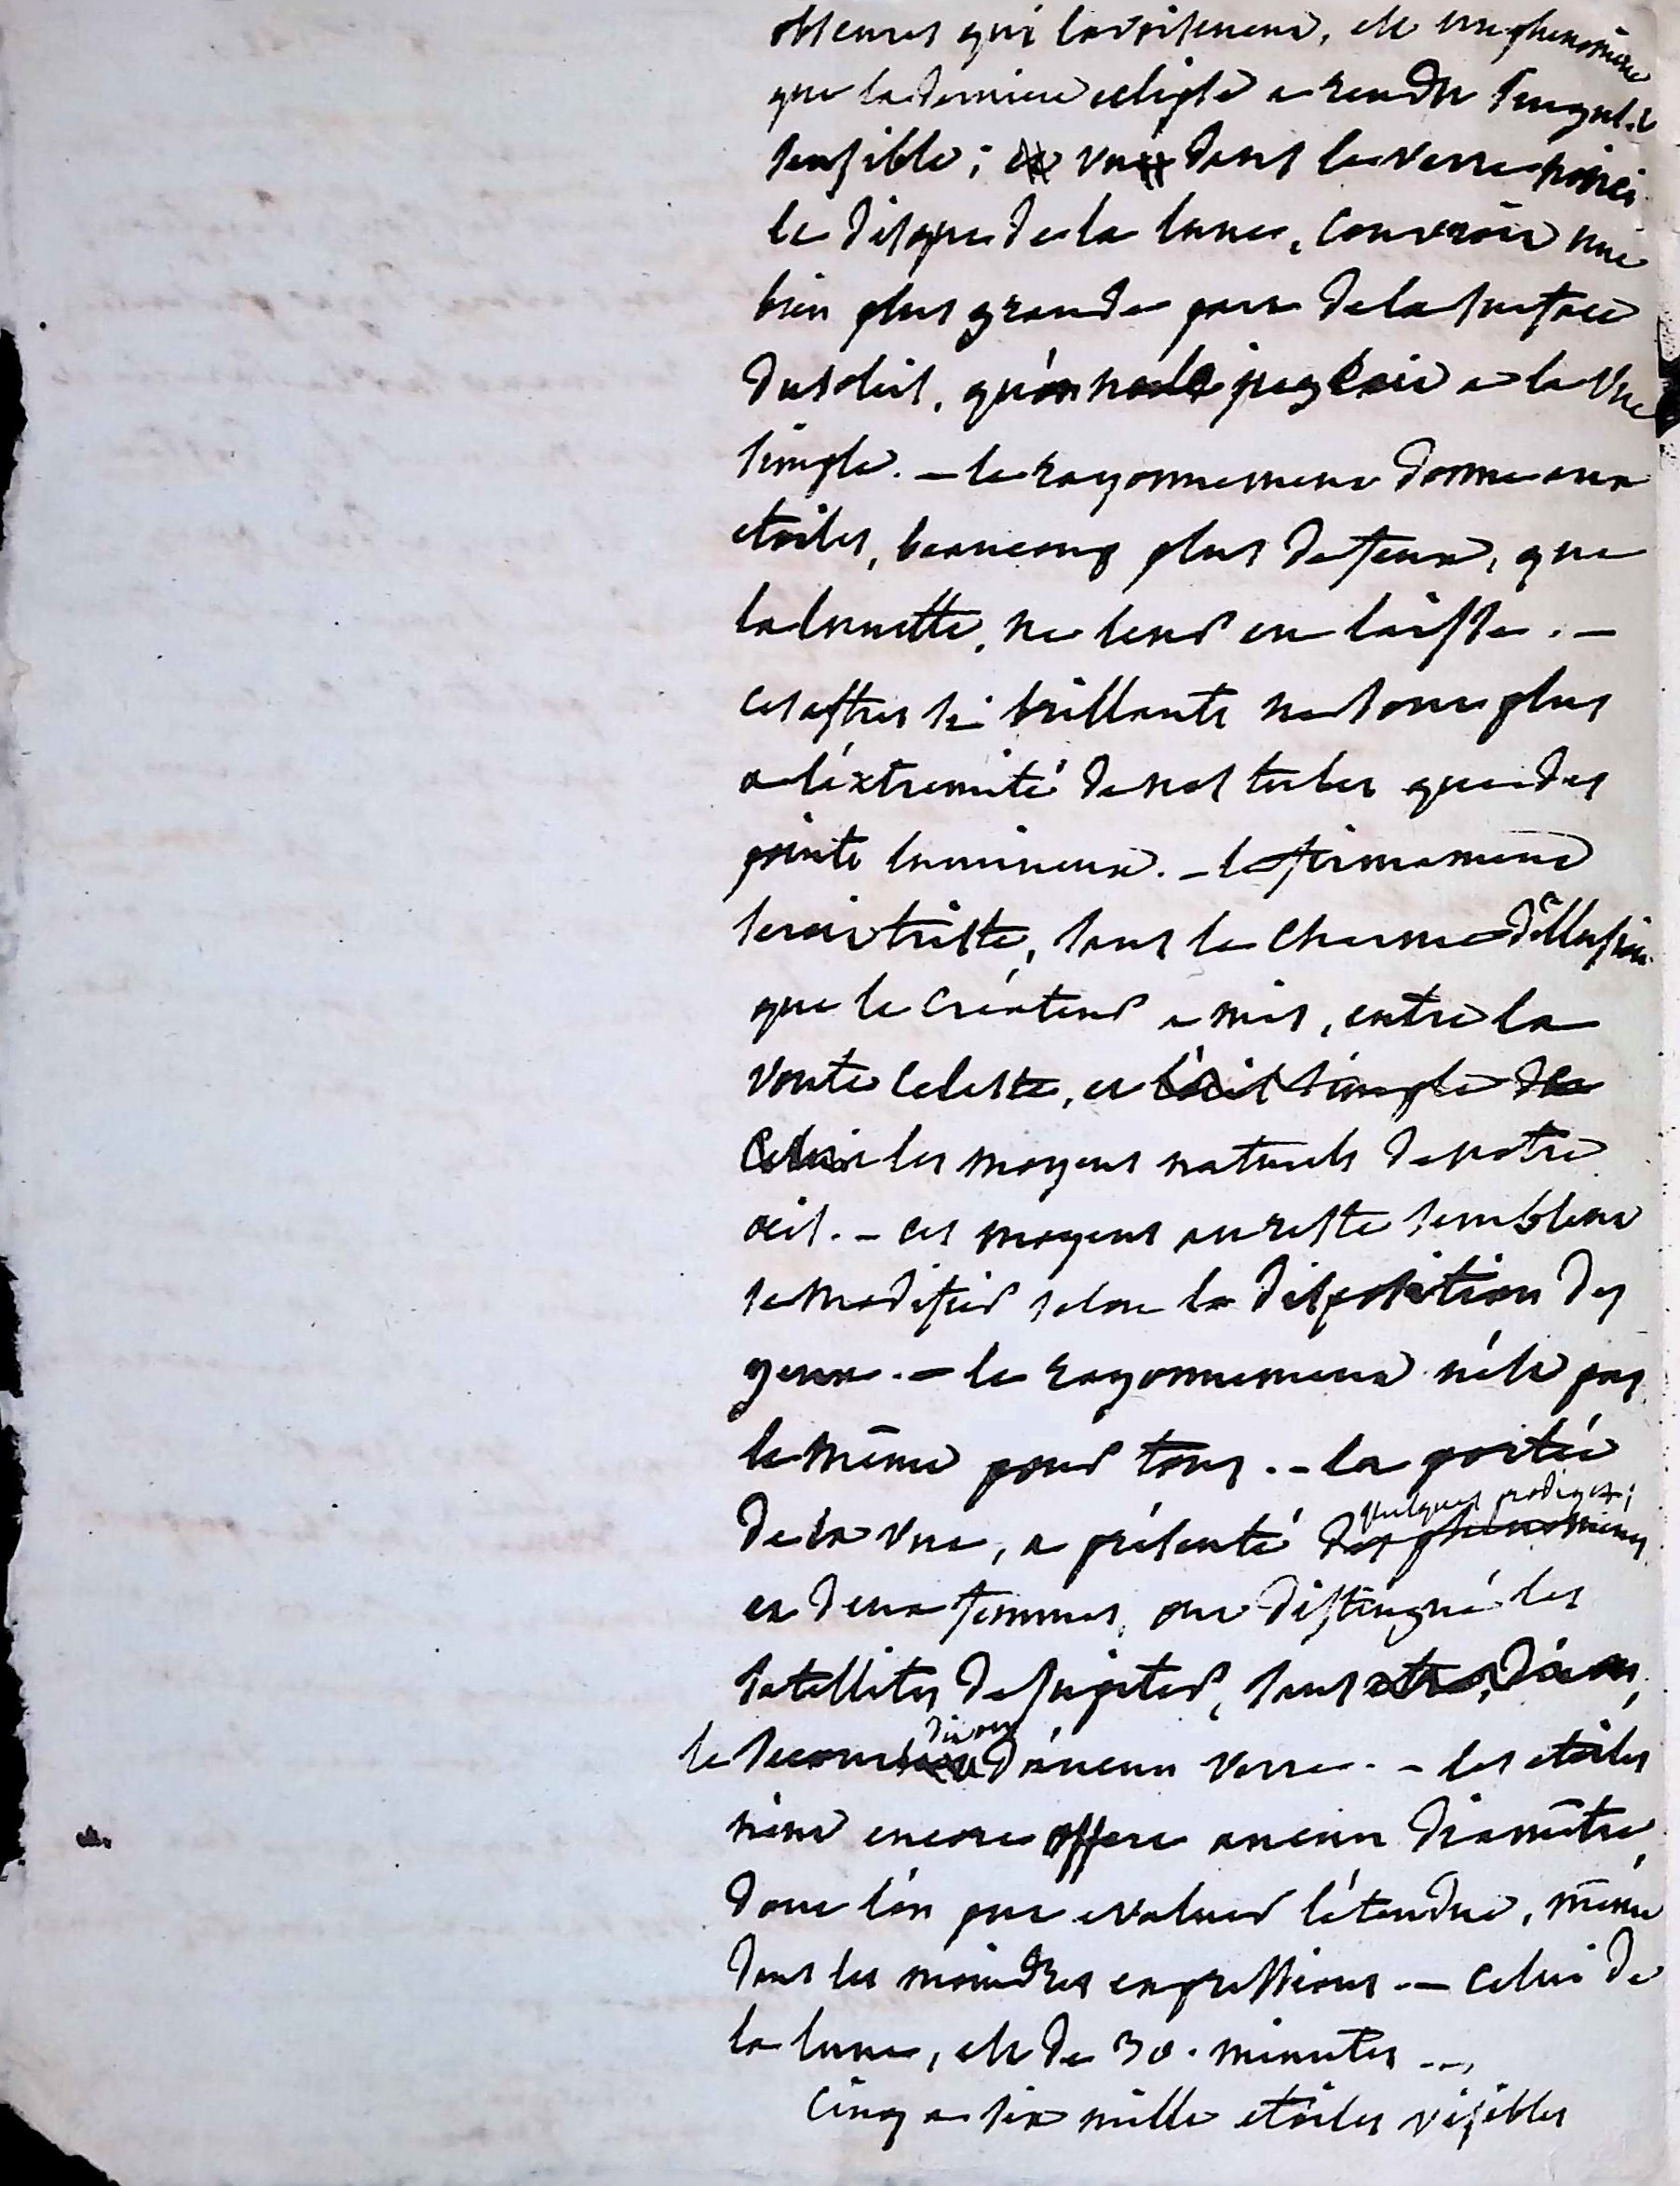 obscures qui l'avoisinent, est un phenomène
que la derniere eclipse a rendu singul.t
sensible; vu dans le verre noirci
le disque de la lune, couvroit une
bien plus grande part de la surface
du soleil, qu'on ne le jugeoit a la vue
simple. – le rayonnement donne aux
etoiles, beaucoup plus de feux, que
la lunette, ne leur en laisse. –
ces astres si brillants ne sont plus
a l'éxtremité de nos tubes que des
points lumineux. – le firmament
seroit triste, sans le charme d'illusion
que le Créateur a mis, entre la
voute celeste, et l'œil simple de
les moyens naturels de notre
œil. – ces moyens au reste semblent
se modifier selon la disposition des
yeux. – le rayonnement n'est pas
le même pour tous. – la portée
quelques prodiges;
de la vue, a présenté des phenomènes
et deux femmes, ont distingué les
satellites de Jupiter, sans
divers
le secours d'aucun verre. – les etoiles
n'ont encore offert aucun diamêtre,
dont l'on put evaluer l'étendue, même
dans les moindres expressions. – celui de
la lune, est de 30. minutes –.,
Cinq a six mille etoiles visibles